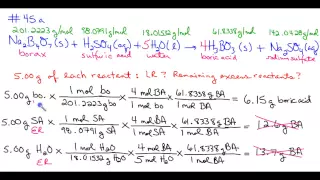 #45a
201.2223g/mol 98.0791g/mol 18.01532g/mol 61.8338g/mol 142.0428g/mol
Na₂B₄O₇(s) + H₂SO₄(aq) + 5H₂O(l) → 4H₃BO₃(s) + Na₂SO₄(aq)
borax sulfuric acid water boric acid sodium sulfate
5.00g of each reactant: LR? Remaining excess reactants?
5.00g bo. × 1 mol bo / 201.2223g bo × 4 mol BA / 1 mol bo × 61.8338g BA / 1 mol BA = 6.15g boric acid
5.00g SA × 1 mol SA / 98.0791g SA × 4 mol BA / 1 mol SA × 61.8338g BA / 1 mol BA = 12.6g BA
ER
5.00g H₂O × 1 mol H₂O / 18.01532g H₂O × 4 mol BA / 5 mol H₂O × 61.8338g BA / 1 mol BA = 13.7g BA
ER